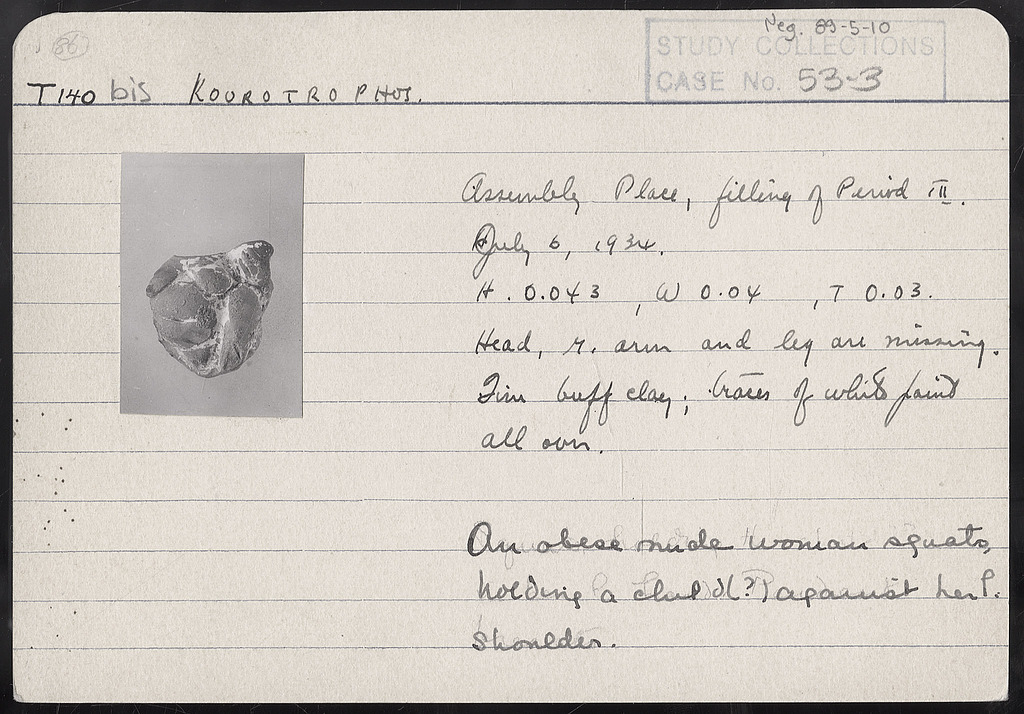 86
Neg. 89-5-10
STUDY COLLECTIONS
CASE No. 53-3
T140 bis KOUROTROPHOS.
Assembly Place, filling of Period III.
July 6, 1934.
H. 0.043, W 0.04, T 0.03.
Head, r. arm and leg are missing.
Fine buff clay; traces of white paint
all over.
An obese nude woman squats,
holding a child(?) against her l.
shoulder.